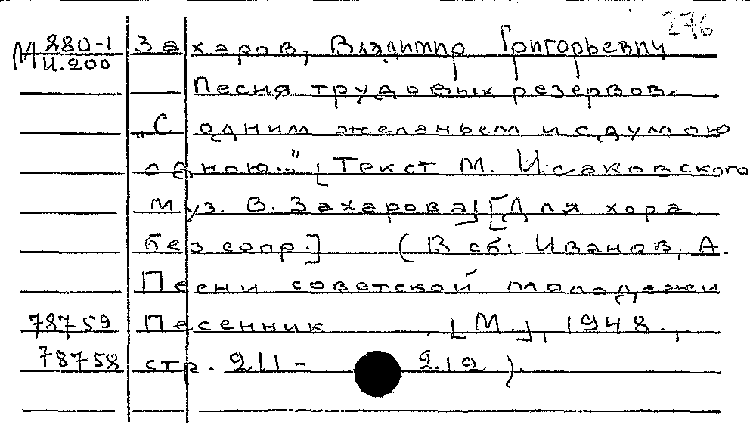 276
М 880-1 Захаров, Владимир Григорьевич
И.200
Песня трудовых резервов.
„С одним желаньем и с думою
одною..." [Текст М. Исаковского
Муз. В. Захарова] [Для хора
без сопр.] (В сб: Иванов, А.
Песни советской молодежи
78759 Песенник [М], 1948.,
78758 стр. 211-212).